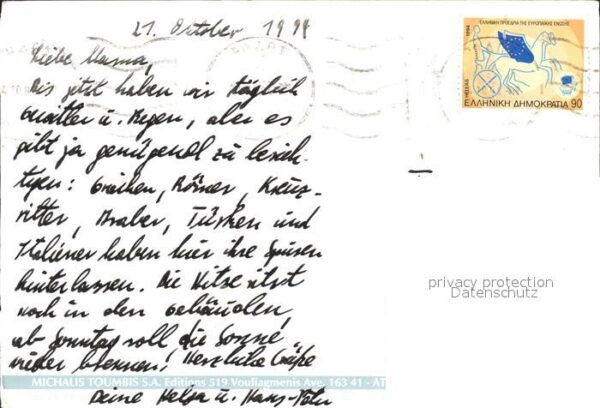 21. Oktober 1994
Liebe Mama,
Bis jetzt haben wir täglich
Gewitter u. Regen, aber es
gibt ja genügend zu besich-
tigen: Griechen, Römer, Kreuz-
ritter, Araber, Türken und
Italiener haben hier ihre Spuren
hinterlassen. Die Hitze sitzt
noch in den Gebäuden,
ab Sonntag soll die Sonne
wieder brennen! Herzliche Grüße
Deine Helga u. Hans-Peter
MICHALIS TOUMBIS S.A. Editions 519 Vouliagmenis Ave. 163 41 - AT
ΕΛΛΗΝΙΚΗ ΠΡΟΕΔΡΙΑ ΤΗΣ ΕΥΡΩΠΑΪΚΗΣ ΕΝΩΣΗΣ
1994
HELLAS
ΕΛΛΗΝΙΚΗ ΔΗΜΟΚΡΑΤΙΑ 90
privacy protection
Datenschutz